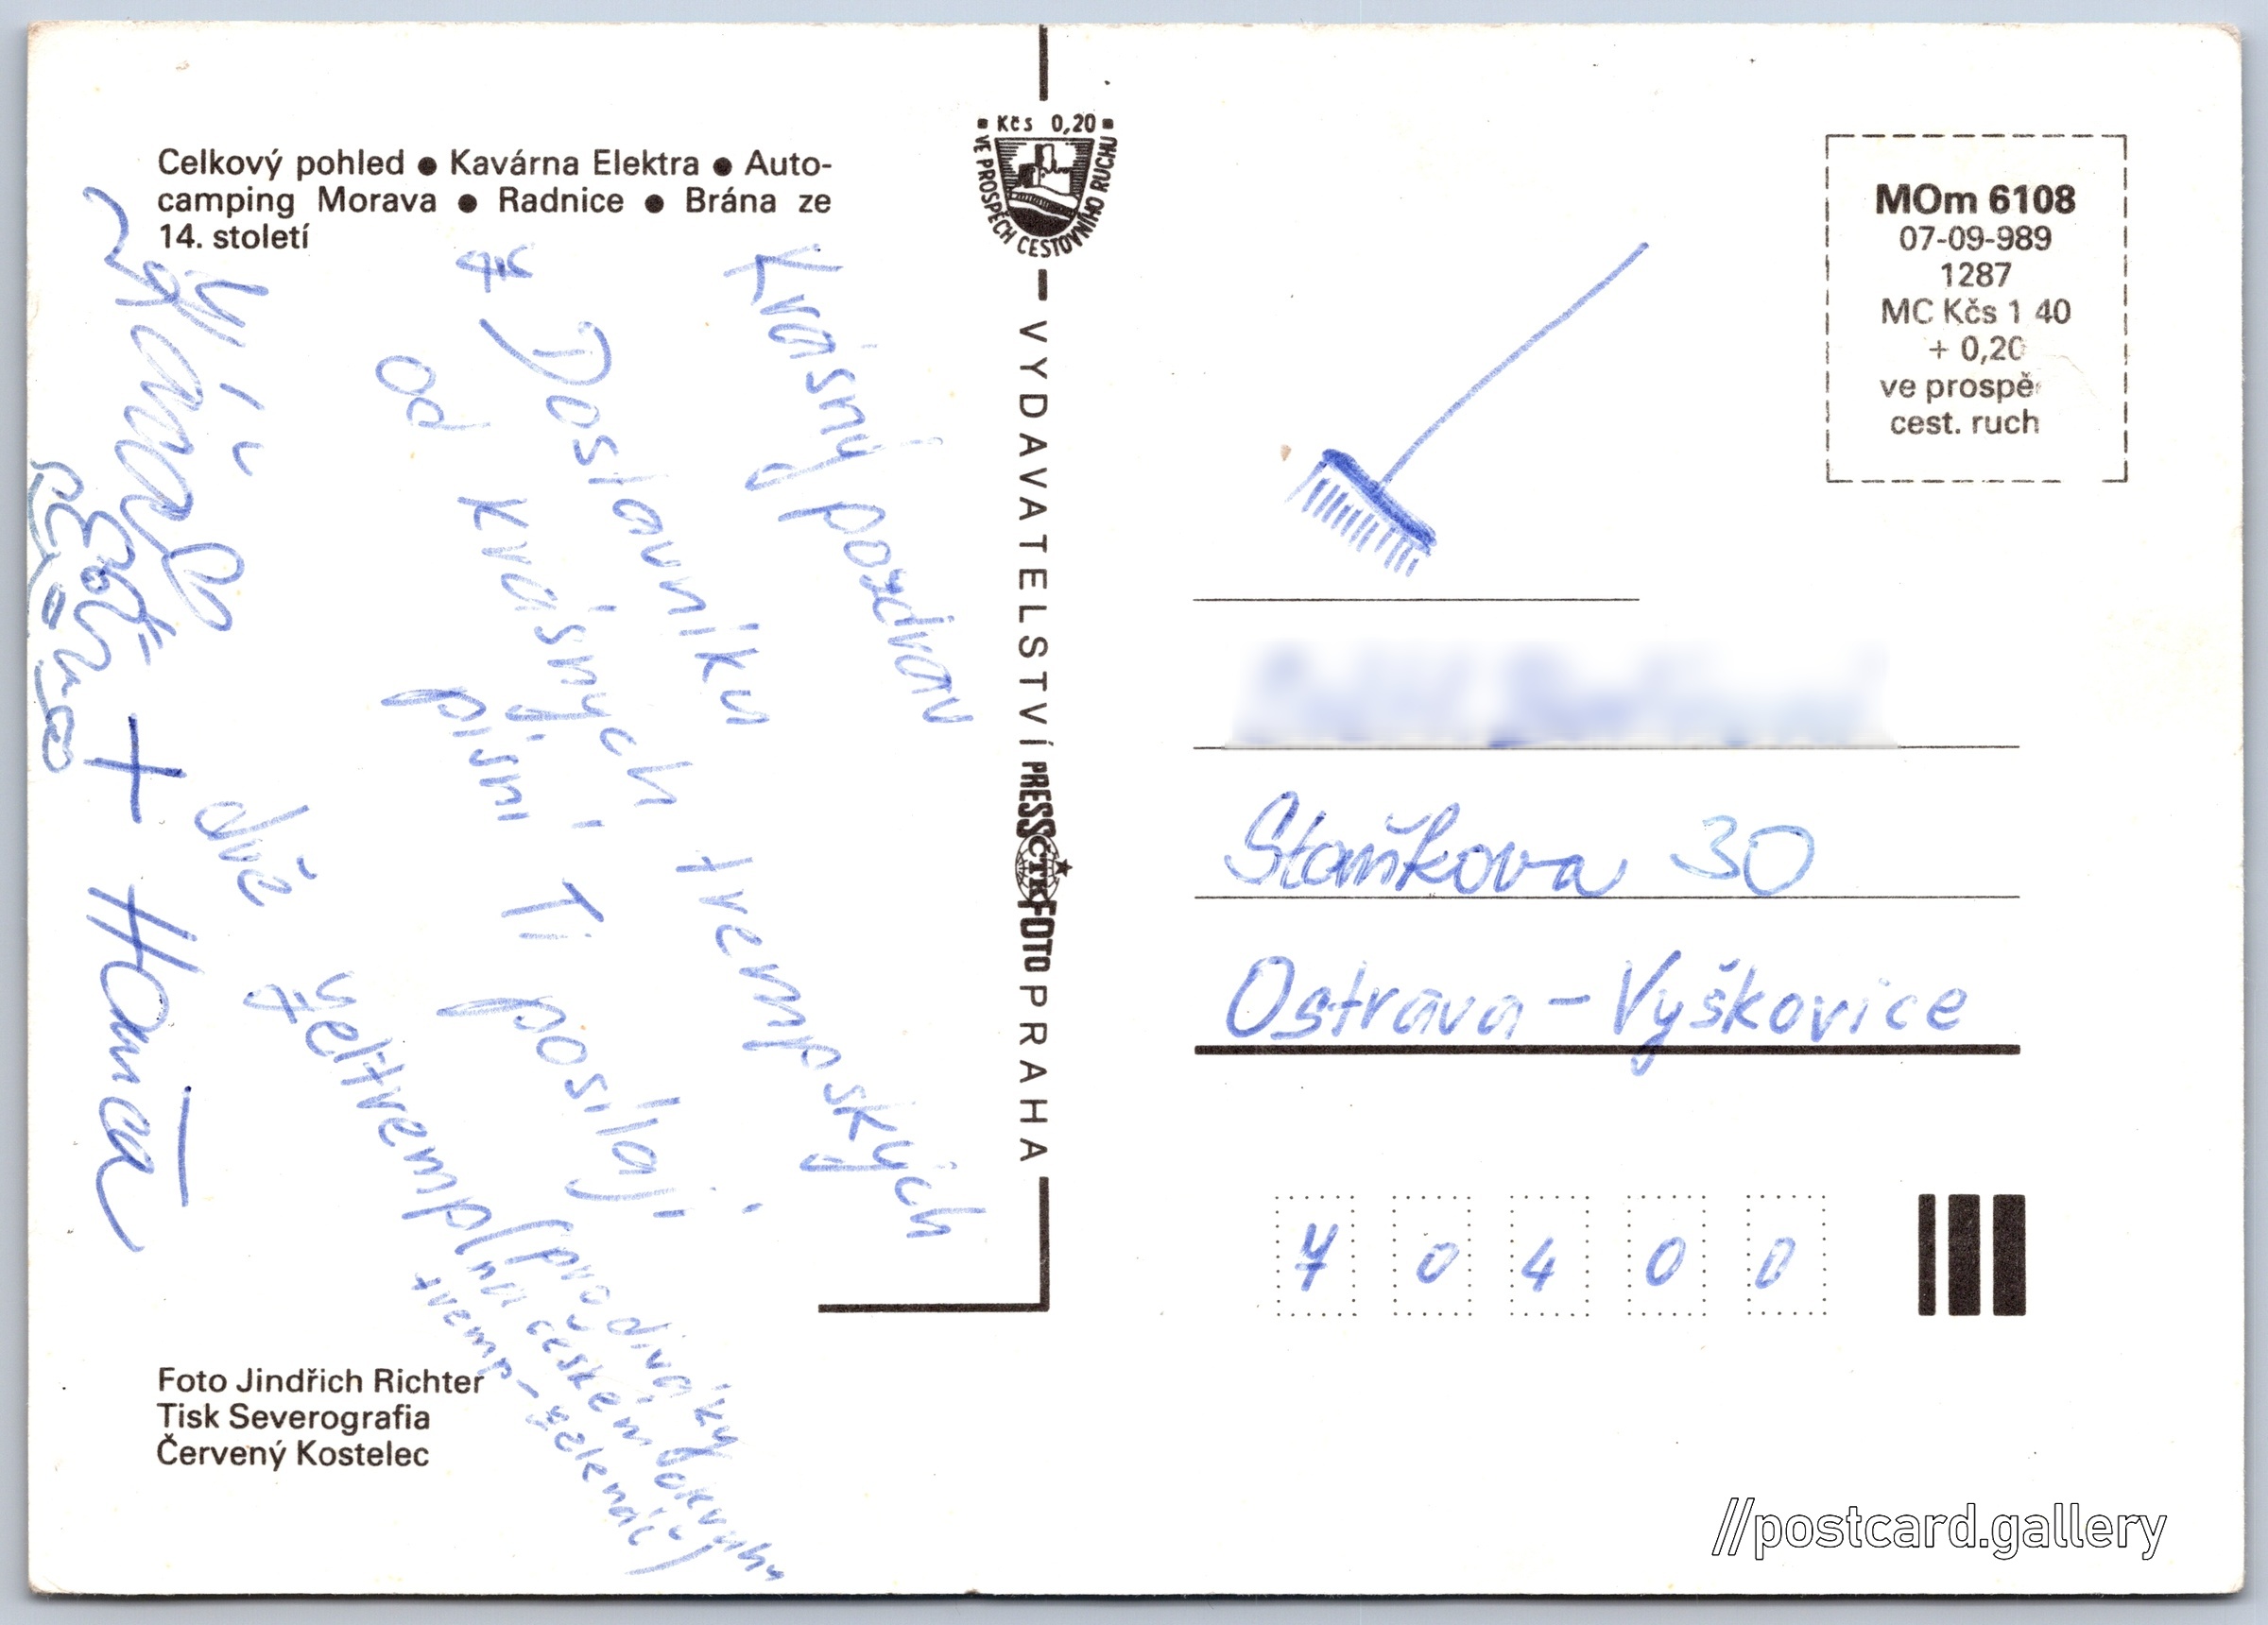 Celkový pohled ● Kavárna Elektra ● Auto-
camping Morava ● Radnice ● Brána ze
14. století
Krásný pozdrav
z Dostavníku
od krásných trempských
písní Ti posílají
dvě želtrempl
(pro diváky
tremp - zelenáč)
+ Honza
Foto Jindřich Richter
Tisk Severografia
Červený Kostelec
▪ Kčs 0,20 ▪
VE PROSPĚCH CESTOVNÍHO RUCHU
VYDAVATELSTVÍ PRESSFOTO PRAHA
ČTK
MOm 6108
07-09-989
1287
MC Kčs 1 40
+ 0,20
ve prospě
cest. ruch
Staňkova 30
Ostrava - Vyškovice
70400
//postcard.gallery